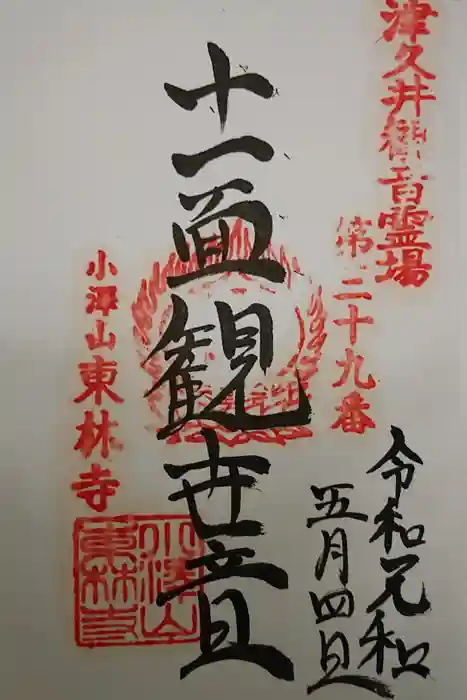 津久井観音霊場
第二十九番
十一面観世音
小澤山東林寺
小澤山
東林寺
令和元年
五月四日